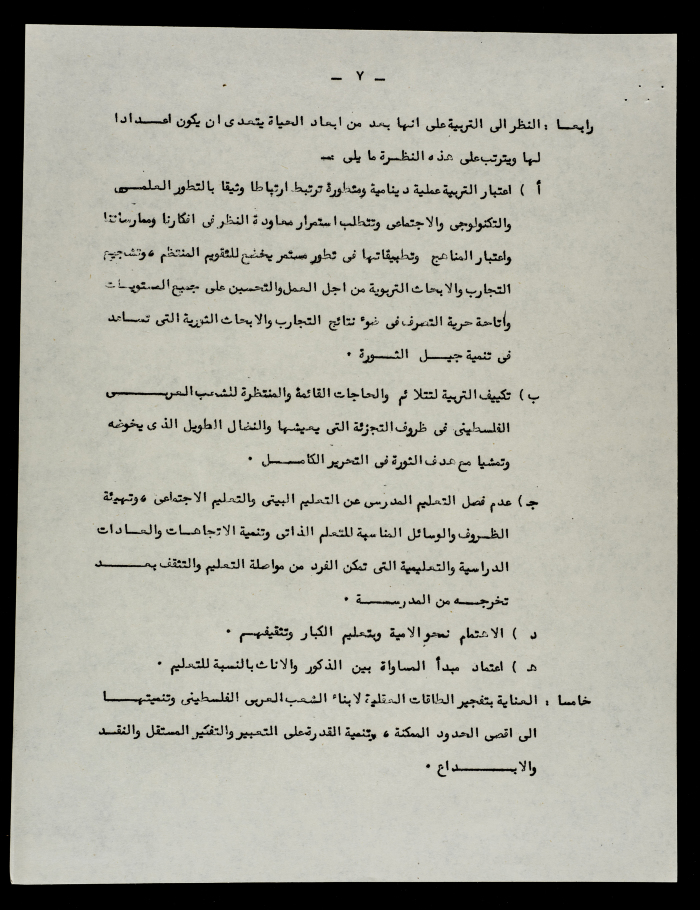 — ٧ —
رابعا : النظر الى التربية على انها بعد من ابعاد الحياة يتعدى ان يكون اعدادا
لها ويترتب على هذه النظرة ما يلى :—
أ ) اعتبار التربية عملية دينامية ومتطورة ترتبط ارتباطا وثيقا بالتطور العلمى
والتكنولوجى والاجتماعى وتتطلب استمرار معاودة النظر فى افكارنا وممارساتنا
واعتبار المناهج وتطبيقاتها فى تطور مستمر يخضع للتقويم المنتظم ، وتشجيع
التجارب والابحاث التربوية من اجل العمل والتحسين على جميع المستويات
واتاحة حرية التصرف فى ضوء نتائج التجارب والابحاث الثورية التى تساعد
فى تنمية جيل الثورة .
ب ) تكييف التربية لتتلائم والحاجات القائمة والمنتظرة للشعب العربى
الفلسطينى فى ظروف التجزئة التى يعيشها والنضال الطويل الذى يخوضه
وتمشيا مع هدف الثورة فى التحرير الكامل .
جـ ) عدم فصل التعليم المدرسى عن التعليم البيتى والتعليم الاجتماعى ، وتهيئة
الظروف والوسائل المناسبة للمتعلم الذاتى وتنمية الاتجاهات والعادات
الدراسية والتعليمية التى تمكن الفرد من مواصلة التعليم والتثقف بعد
تخرجه من المدرسة .
د ) الاهتمام نحو الامية وبتعليم الكبار وتثقيفهم .
هـ ) اعتماد مبدأ المساواة بين الذكور والاناث بالنسبة للتعليم .
خامسا : العناية بتفجير الطاقات العقلية لابناء الشعب العربى الفلسطينى وتنميتها
الى اقصى الحدود الممكنة ، وتنمية القدرة على التعبير والتفكير المستقل والنقد
والابداع .